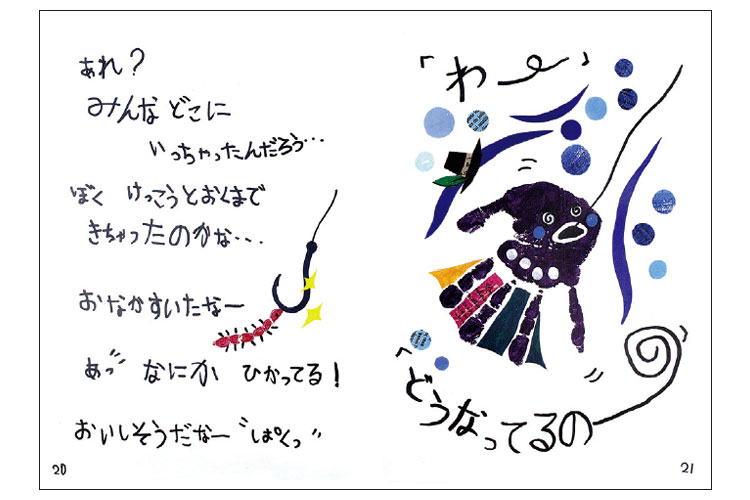 あれ?
みんな どこに
いっちゃったんだろう…
ぼく けっこうとおくまで
きちゃったのかな…
おなかすいたなー
あっ" なにか ひかってる!
おいしそうだなー "ぱくっ"
20
「わー」
「どうなってるのー」
21